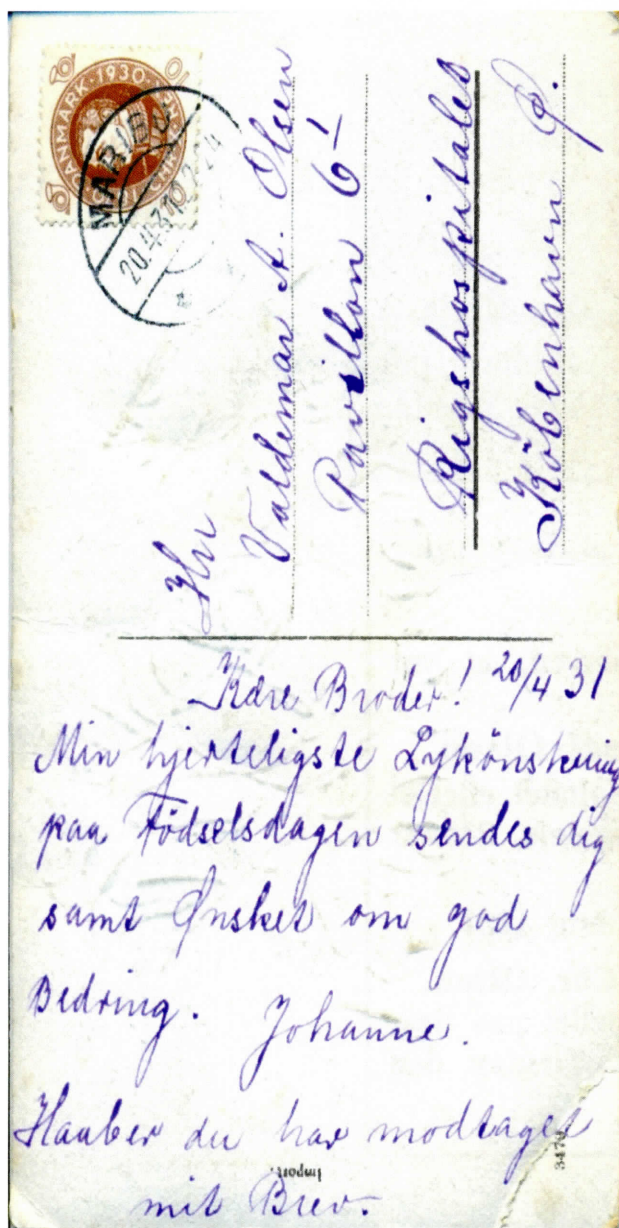 DANMARK · 1930 ·
10
10
MARIBO
20.4.31
Hrr
Valdemar A. Olsen
Pavillon 6 1
Rigshospitalet
Köbenhavn Ø.
Kære Broder! 20/4 31
Min hjerteligste Lykönskning
paa Födselsdagen sendes dig
samt Ønsket om god
Bedring. Johanne.
Haaber du har modtaget
mit Brev.
Import.
3479